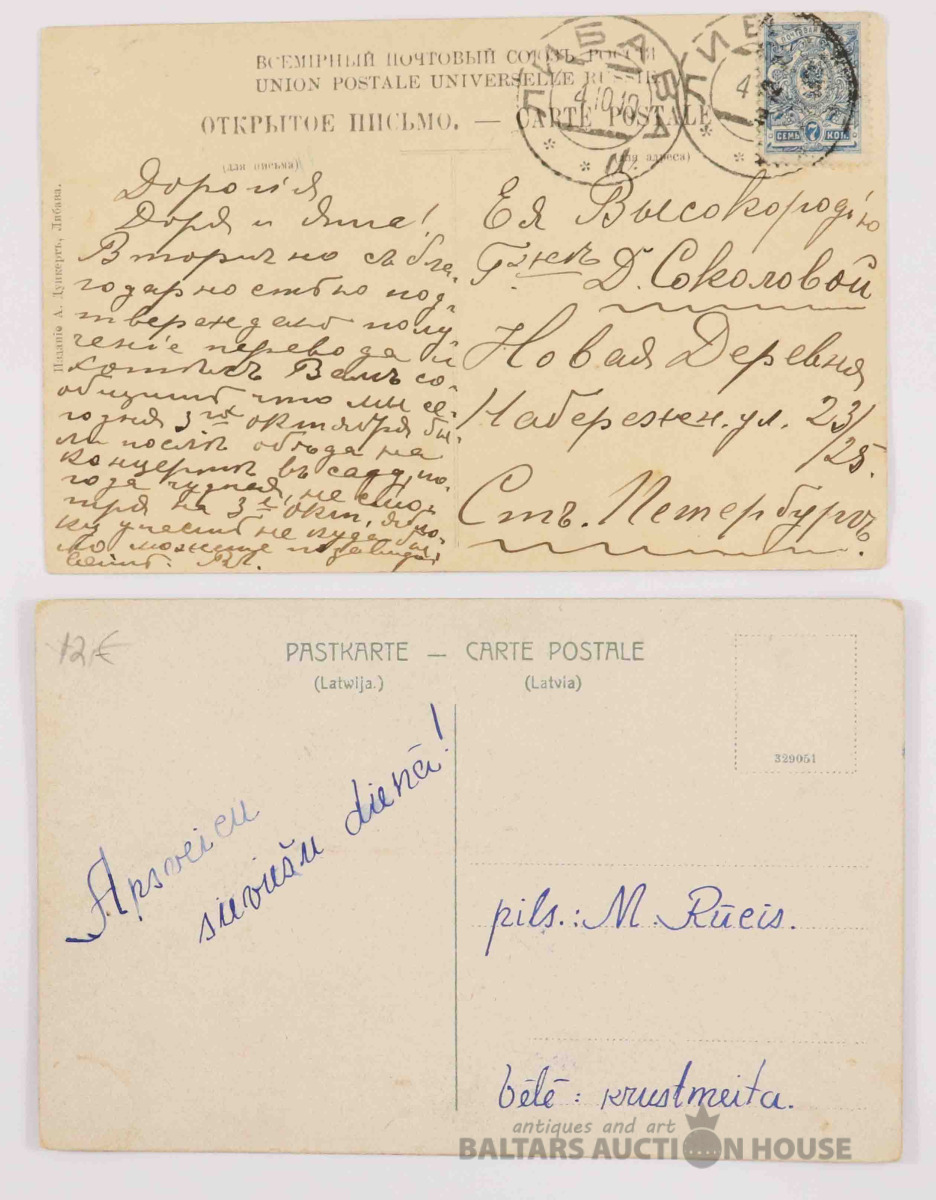 ВСЕМІРНЫЙ ПОЧТОВЫЙ СОЮЗЪ РОССІЯ
UNION POSTALE UNIVERSELLE RUSSIE
ОТКРЫТОЕ ПИСЬМО. — CARTE POSTALE
ЛИБАВА
4.10.10
СЕМЬ 7 КОП.
(для письма)
(для адреса)
Изданіе А. Дункертъ, Либава.
Дорогія
Доря и
Вторично съ бла-
годарностью под-
тверждаю полу
ченіе перевода и
Вамъ со-
что мы се-
годня 3го октября бы-
ли послѣ обѣда на
концертѣ въ саду, по-
года чудная, не смо-
тря на 3е окт,
Ея Высокородію
Г-жѣ Д. Соколовой
Новая Деревня
Набережн. ул. 23/
/25.
Стъ. Петербургъ.
12 €
PASTKARTE — CARTE POSTALE
(Latwija.) (Latvia)
329051
Apsveicu
sieviešu dienā!
pils.: M. Rūcis.
bēlē: krustmeita.
antiques and art
BALTARS AUCTION HOUSE